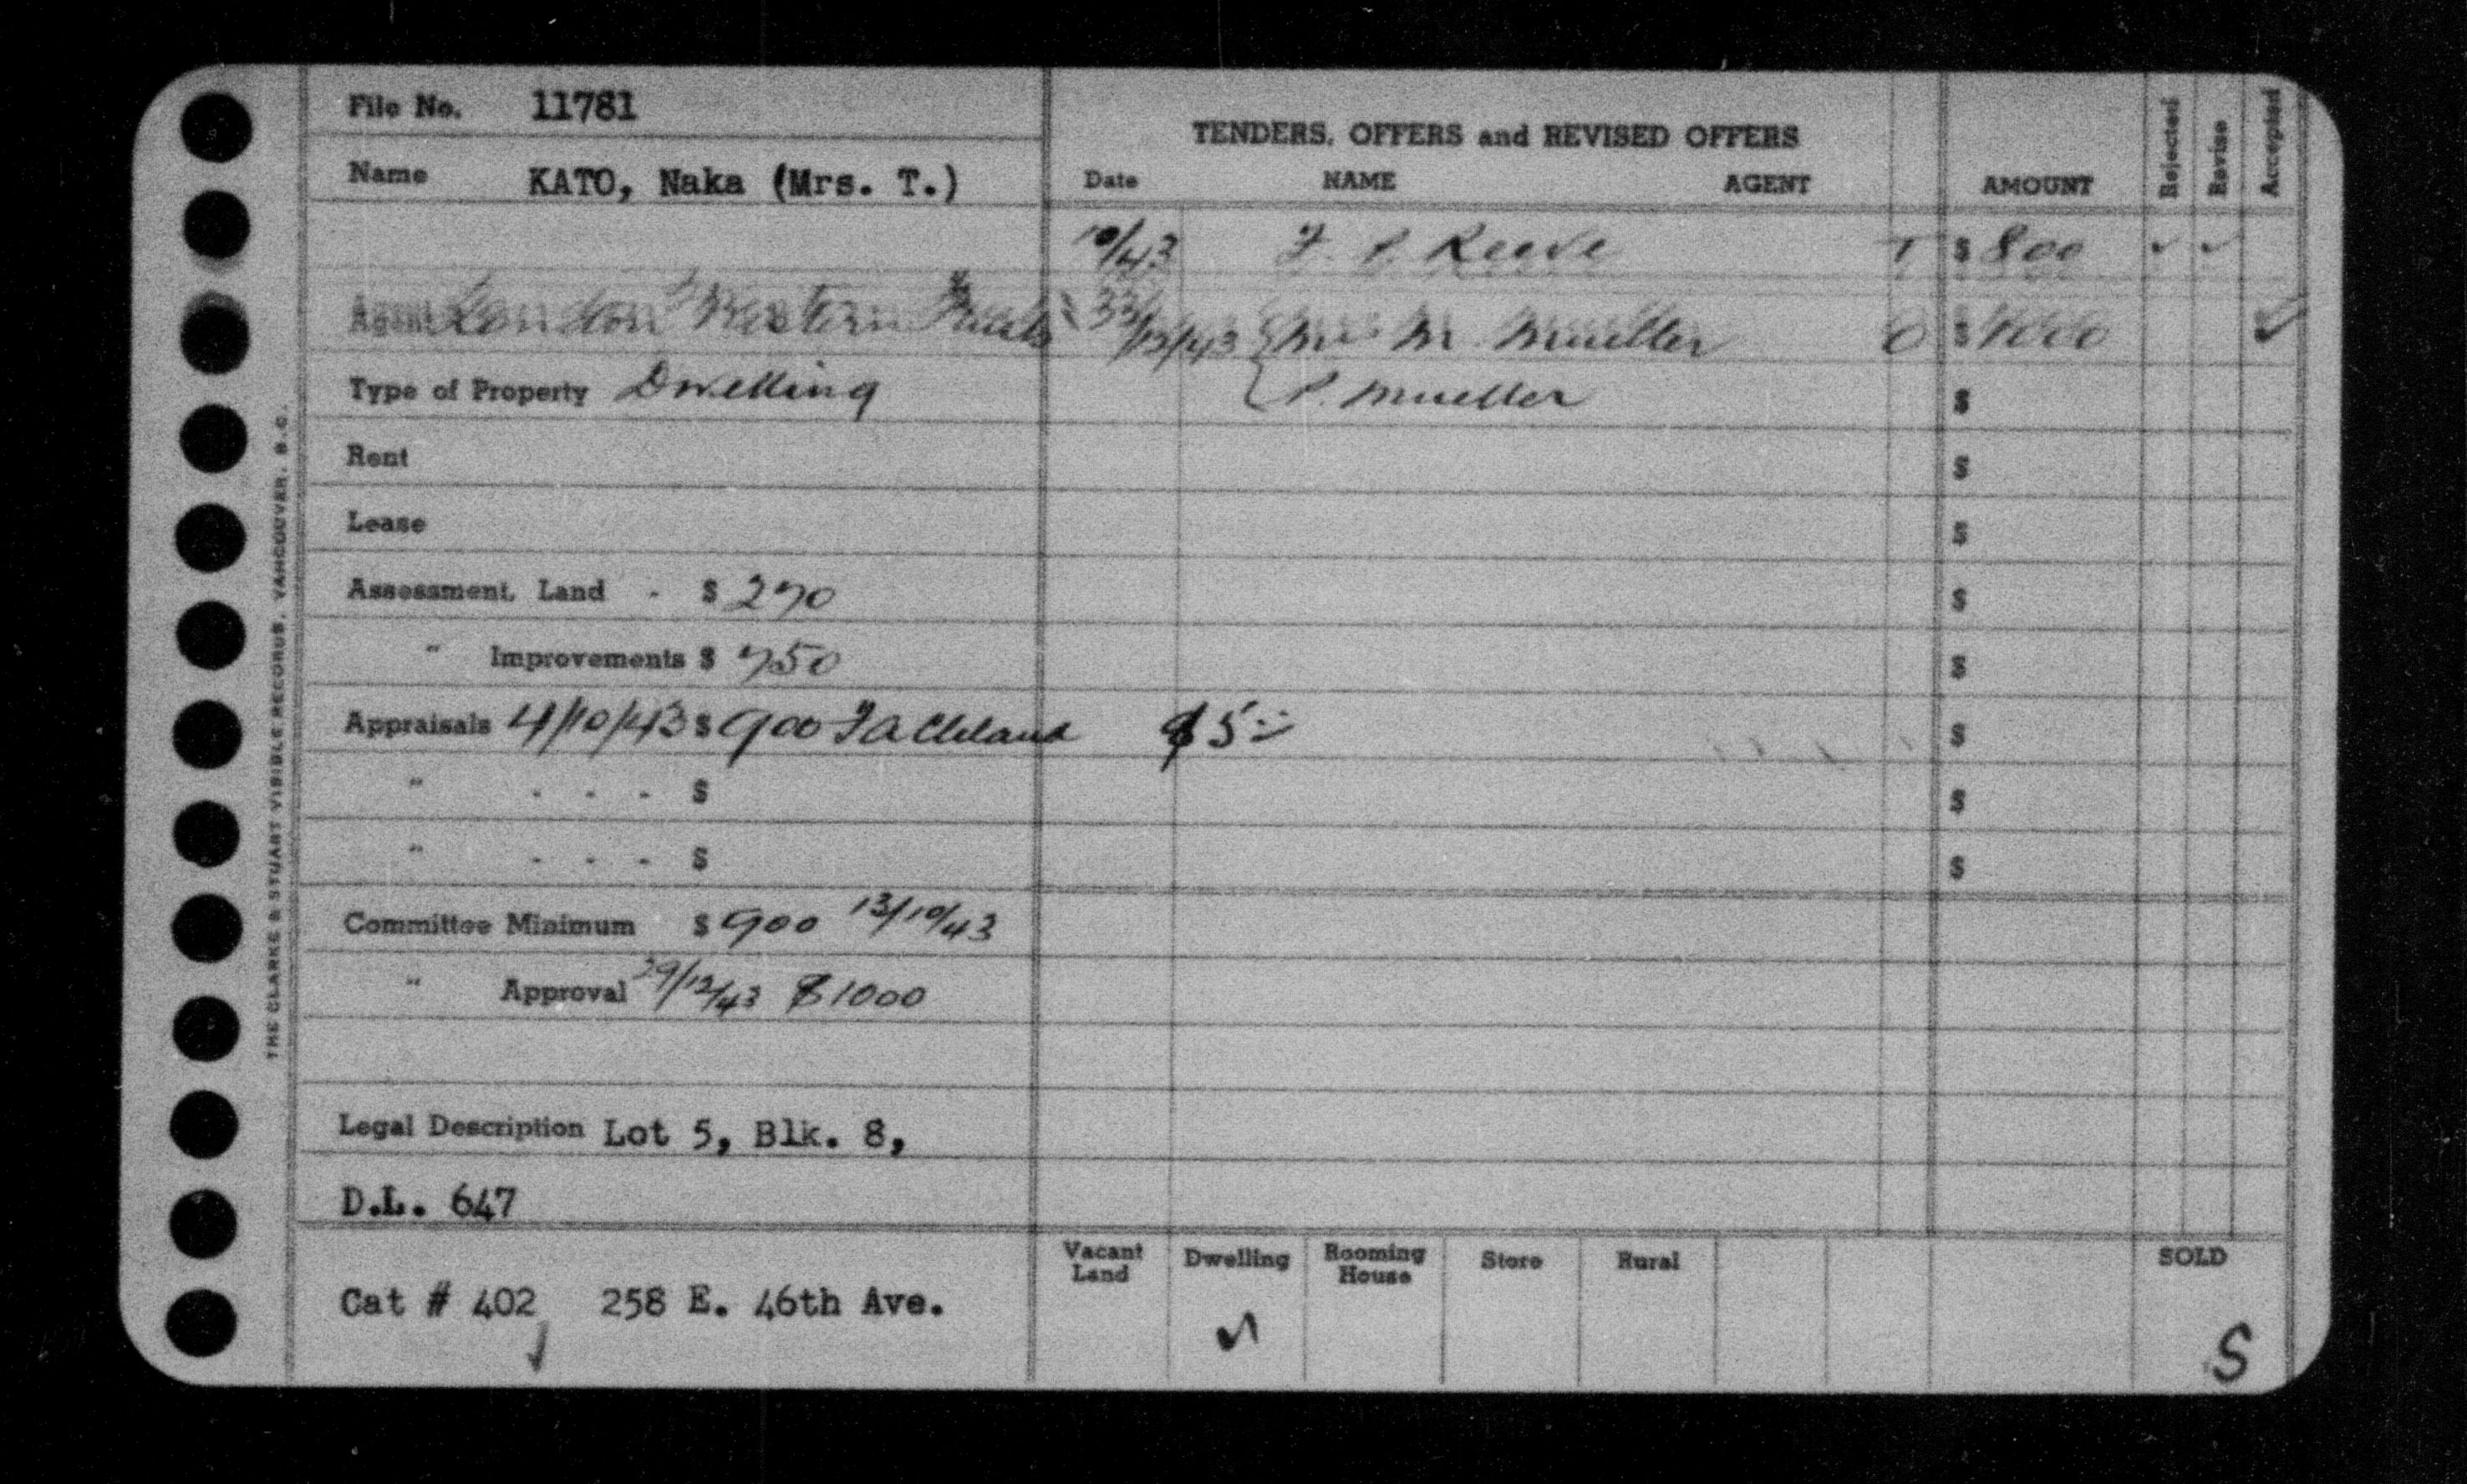 File No. 11781
Name KATO, Naka (Mrs. T.)
Agent London & Western Trusts
Type of Property Dwelling
Rent
Lease
Assessment, Land - $ 270
" Improvements $ 750
Appraisals 4/10/43 $ 900 $5
" - - - $
" - - - $
Committee Minimum $ 900 13/10/43
" Approval 29/12/43 $1000
Legal Description Lot 5, Blk. 8,
D.L. 647
Cat # 402 258 E. 46th Ave.
THE CLARKE & STUART VISIBLE RECORDS, VANCOUVER, B.C.
TENDERS, OFFERS and REVISED OFFERS
Date NAME AGENT AMOUNT Rejected Revise Accepted
10/43 F. P. Reeve T $ 800 ✓ ✓
/12/43 M. Mueller O $ 1000 ✓
P. Mueller $
$
$
$
$
$
$
$
Vacant Land Dwelling Rooming House Store Rural SOLD
✓ S